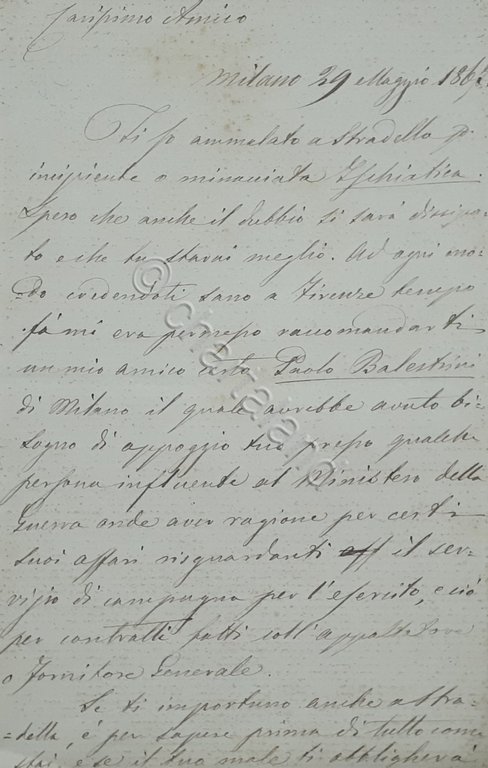 Carissimo Amico
Milano 29 Maggio 186
Ti so ammalato a Stradella p
incipiente o minacciata Ischiatica.
Spero che anche il dubbio si sarà dissipa-
to e che tu starai meglio. Ad ogni mo-
=do credendoti sano a Firenze tempo
fa mi era permesso raccomandarti
un mio amico certo Paolo Balestrini
di Milano il quale avrebbe avuto bi-
sogno di appoggio tuo presso qualche
persona influente al Ministero della
Guerra onde aver ragione per certi
suoi affari risguardanti il ser-
vizio di campagna per l'esercito, e ciò
per contratti fatti coll'appaltatore
o Fornitore Generale.
Se ti importuno anche a Stra-
=della, è per sapere prima di tutto come
stai, e se il tuo male ti obbligherà
© chartaland